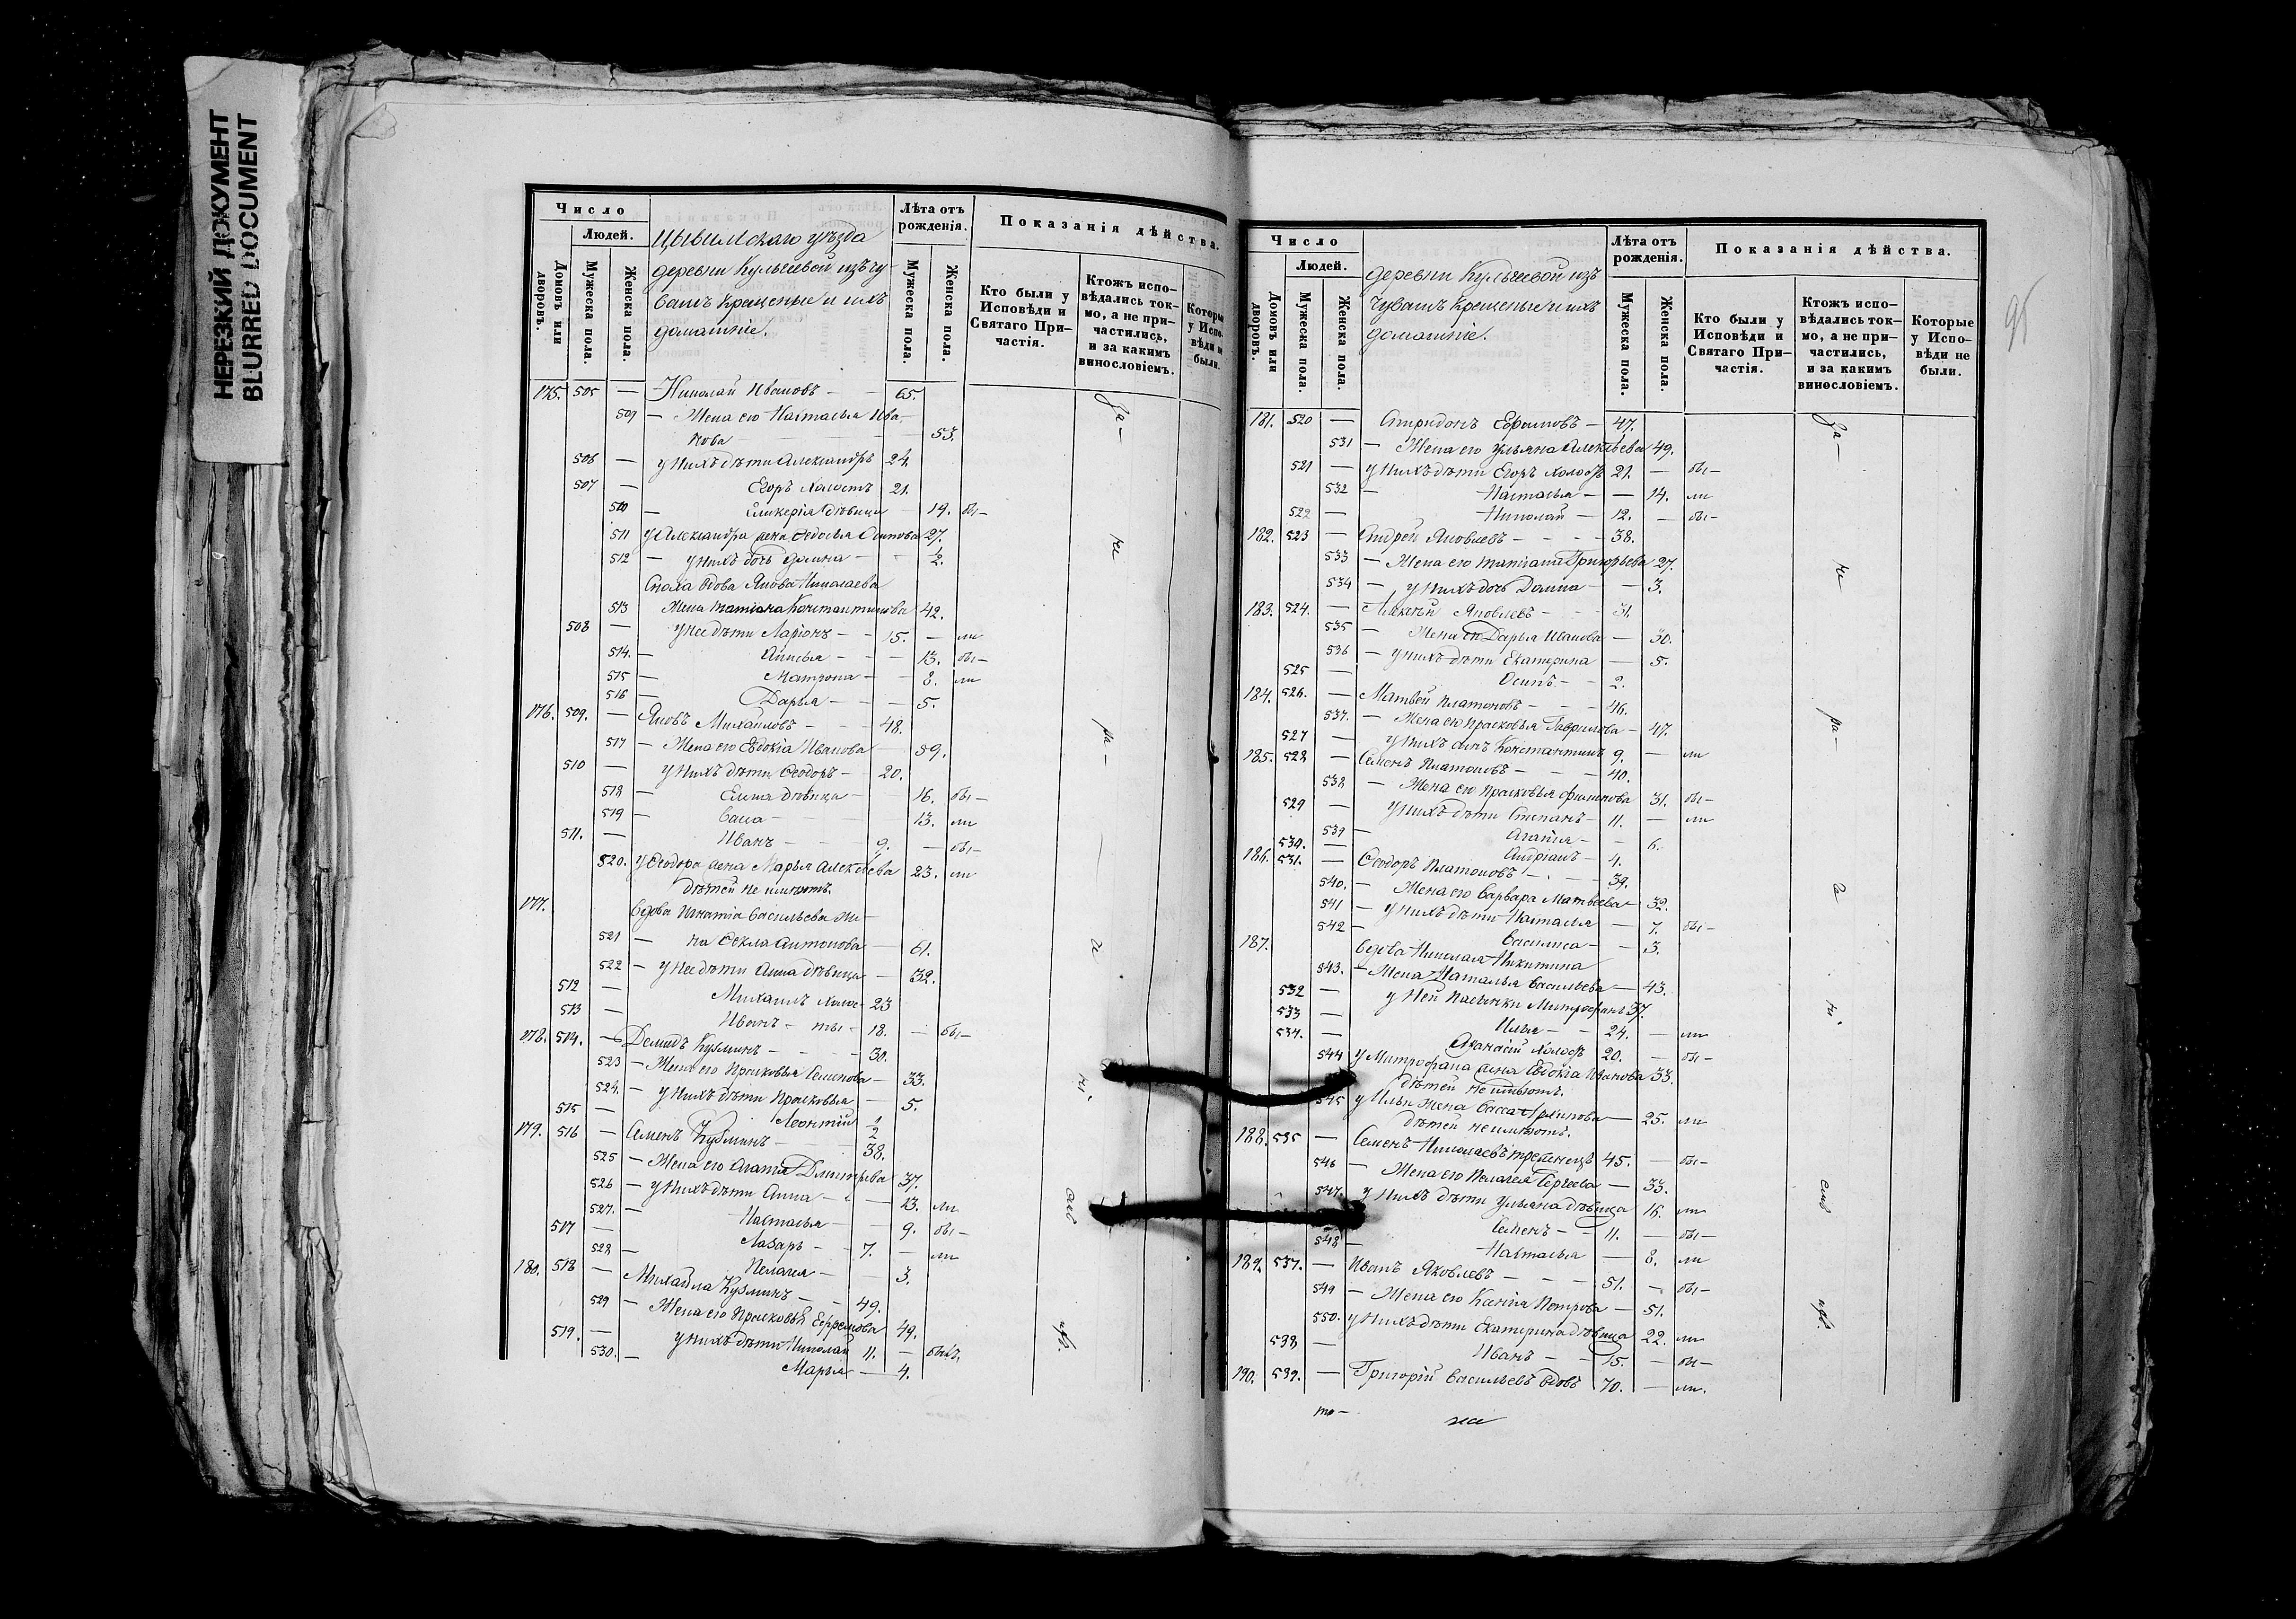 НЕРЕЗКИЙ ДОКУМЕНТ
BLURRED DOCUMENT
Число
Людей.
Домовъ или дворовъ.
Мужеска пола.
Женска пола.
Цывильскаго уѣзда
деревни Кульгеевой изъ чу-
вашъ крещеные и ихъ
домашніе.
Лѣта отъ рожденія.
Мужеска пола.
Женска пола.
Показанія дѣйства.
Кто были у Исповѣди и Святаго При-частія.
Ктожъ испо-вѣдались ток-мо, а не при-частились, и за какимъ винословіемъ.
Которые у Испо-вѣди не были.
175. 505 — Николай Ивановъ — — 65.
509 — Жена его Настасья Ива
нова — — 53.
506 — у нихъ дѣти Александръ 24.
507 — Егоръ Холостъ 21.
510 — Гликерія дѣвица — 19. бы —
511 у Александра жена Ѳедосья Осипова 27.
512 — у нихъ дочь — — 1/2.
Сноха вдова Якова Николаева
513 жена Татіана Константинова 42.
508 — у нее дѣти Ларіонъ — — 15. — ли
514. — Анисья — — 13. бы —
515 — Матрона — — 8. ли
516 — Дарья — — 5.
176. 509. — Яковъ Михайловъ — — 48.
517 — Жена его Евдокіа Иванова 59.
510 — у нихъ дѣти Ѳеодоръ — 20.
518 — Елена дѣвица — 16. бы —
519 — Васса — — 13. ли
511. — Иванъ — — 9. — бы —
520. у Ѳеодора жена Марья Алексѣева 23. ли
дѣтей не имѣютъ.
177. Вдова Игнатіа Васильева же —
521 — на Ѳекла Антонова — 61.
522 — у нее дѣти Анна дѣвица — 32.
512 — Михаилъ Холос — 23
513 — Иванъ — ты — 18. — бы —
178. 514. — Демидъ Кузминъ — — 30.
523 — Жена его Прасковья Семенова — 33.
524. — у нихъ дѣти Прасковья — 5.
515 — Леонтій 1/2
179. 516 — Семенъ Кузминъ — — 38.
525 — Жена его Агатія Дмитріева 37.
526 — у нихъ дѣти Анна — — 13. ли
527. — Настасья — — 9. бы —
517 — Лазарь — — 7. — ли
528 — Пелагея — — 3.
180. 518 — Михайла Кузминъ — — 49.
529 — Жена его Прасковья Ефремова 49.
519. — у нихъ дѣти Николай 11. — былъ.
530. — Марья — 4.
За —
не
ра —
де
ні
емъ
Число
Людей.
Домовъ или дворовъ.
Мужеска пола.
Женска пола.
деревни Кульгеевой изъ
чувашъ крещеные и ихъ
домашніе.
Лѣта отъ рожденія.
Мужеска пола.
Женска пола.
Показанія дѣйства.
Кто были у Исповѣди и Святаго При-частія.
Ктожъ испо-вѣдались ток-мо, а не при-частились, и за какимъ винословіемъ.
Которые у Испо-вѣди не были.
95
181. 520 — Спиридонъ Ефремовъ — 47.
531 — Жена его Ульяна Алексѣева 49.
521 — у нихъ дѣти Егоръ холостъ 21. — бы —
532 — Настасья — — 14. ли
522 — Николай — 12. — бы —
182. 523 — Андрей Яковлевъ — — 38.
533 — Жена его Татіана Григорьева 27.
534 — у нихъ дочь Домна — — 3.
183. 524. — Алексѣй Яковлевъ — — 31.
535 — Жена его Дарья Иванова — 30.
536 — у нихъ дѣти Екатерина — 5.
525 — Осипъ — — 2.
184. 526. — Матвѣй Платоновъ — — 46.
537. — Жена его Прасковья Гаврилова — 47.
527 — у нихъ сынъ Константинъ 9. — ли
185. 528 — Семенъ Платоновъ — — 40.
538 — Жена его Прасковья Филипова 31. бы —
529 — у нихъ дѣти Степанъ — 11. — ли
539 — Агатія — — 6.
530. — Андріанъ — 4.
186. 531. — Ѳеодоръ Платоновъ — — 39.
540. — Жена его Варвара Матвѣева — 32.
541 — у нихъ дѣти Настасья — 7. бы —
542 — Василиса — — 3.
187. Вдова Николая Никитина
543. — Жена Наталья Васильева — 43.
532 — у ней пасынки Митрофанъ 37.
533 — Илья — — 24. — ли
534. — Аѳанасій Холостъ 20. — бы —
544 у Митрофана жена Евдокіа Иванова 33.
дѣтей не имѣютъ.
545 у Ильи жена Васса Архипова — 25. ли
дѣтей не имѣютъ.
188. 535 — Семенъ Николаевъ 45. — бы —
546 — Жена его Пелагея Сергеева — 33.
547. у нихъ дѣти Ульяна дѣвица 16. ли
Семенъ — — 11. — бы —
548 — Настасья — 8. ли
189. 537. — Иванъ Яковлевъ — — 51. — бы —
549 — Жена его Ксенія Петрова — 51.
550. у нихъ дѣти Екатерина дѣвица 22. ли
538 — Иванъ — — 15. — бы —
190. 539. — Григорій Васильевъ вдовъ 70. — ли.
За —
не
ра —
де
ні
емъ